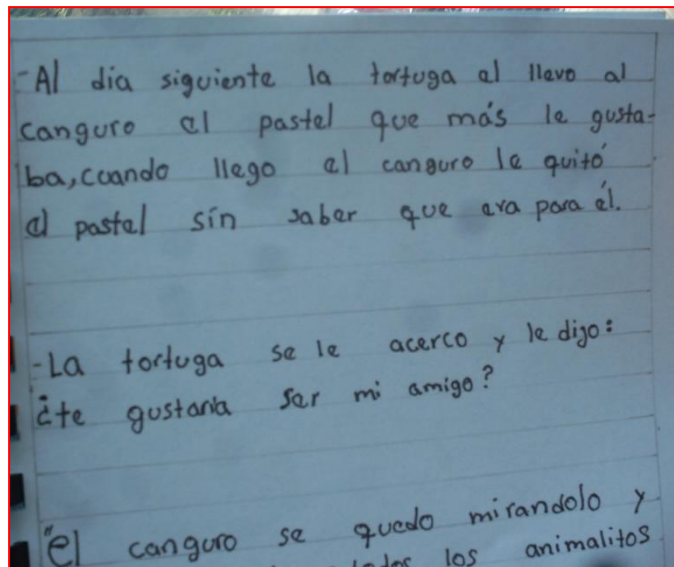 -Al dia siguiente la tortuga el llevo al
canguro el pastel que más le gusta-
ba, cuando llego el canguro le quitó
el pastel sin saber que era para él.
-La tortuga se le acerco y le dijo:
¿te gustaria ser mi amigo?
"el canguro se quedo mirandolo y
todos los animalitos